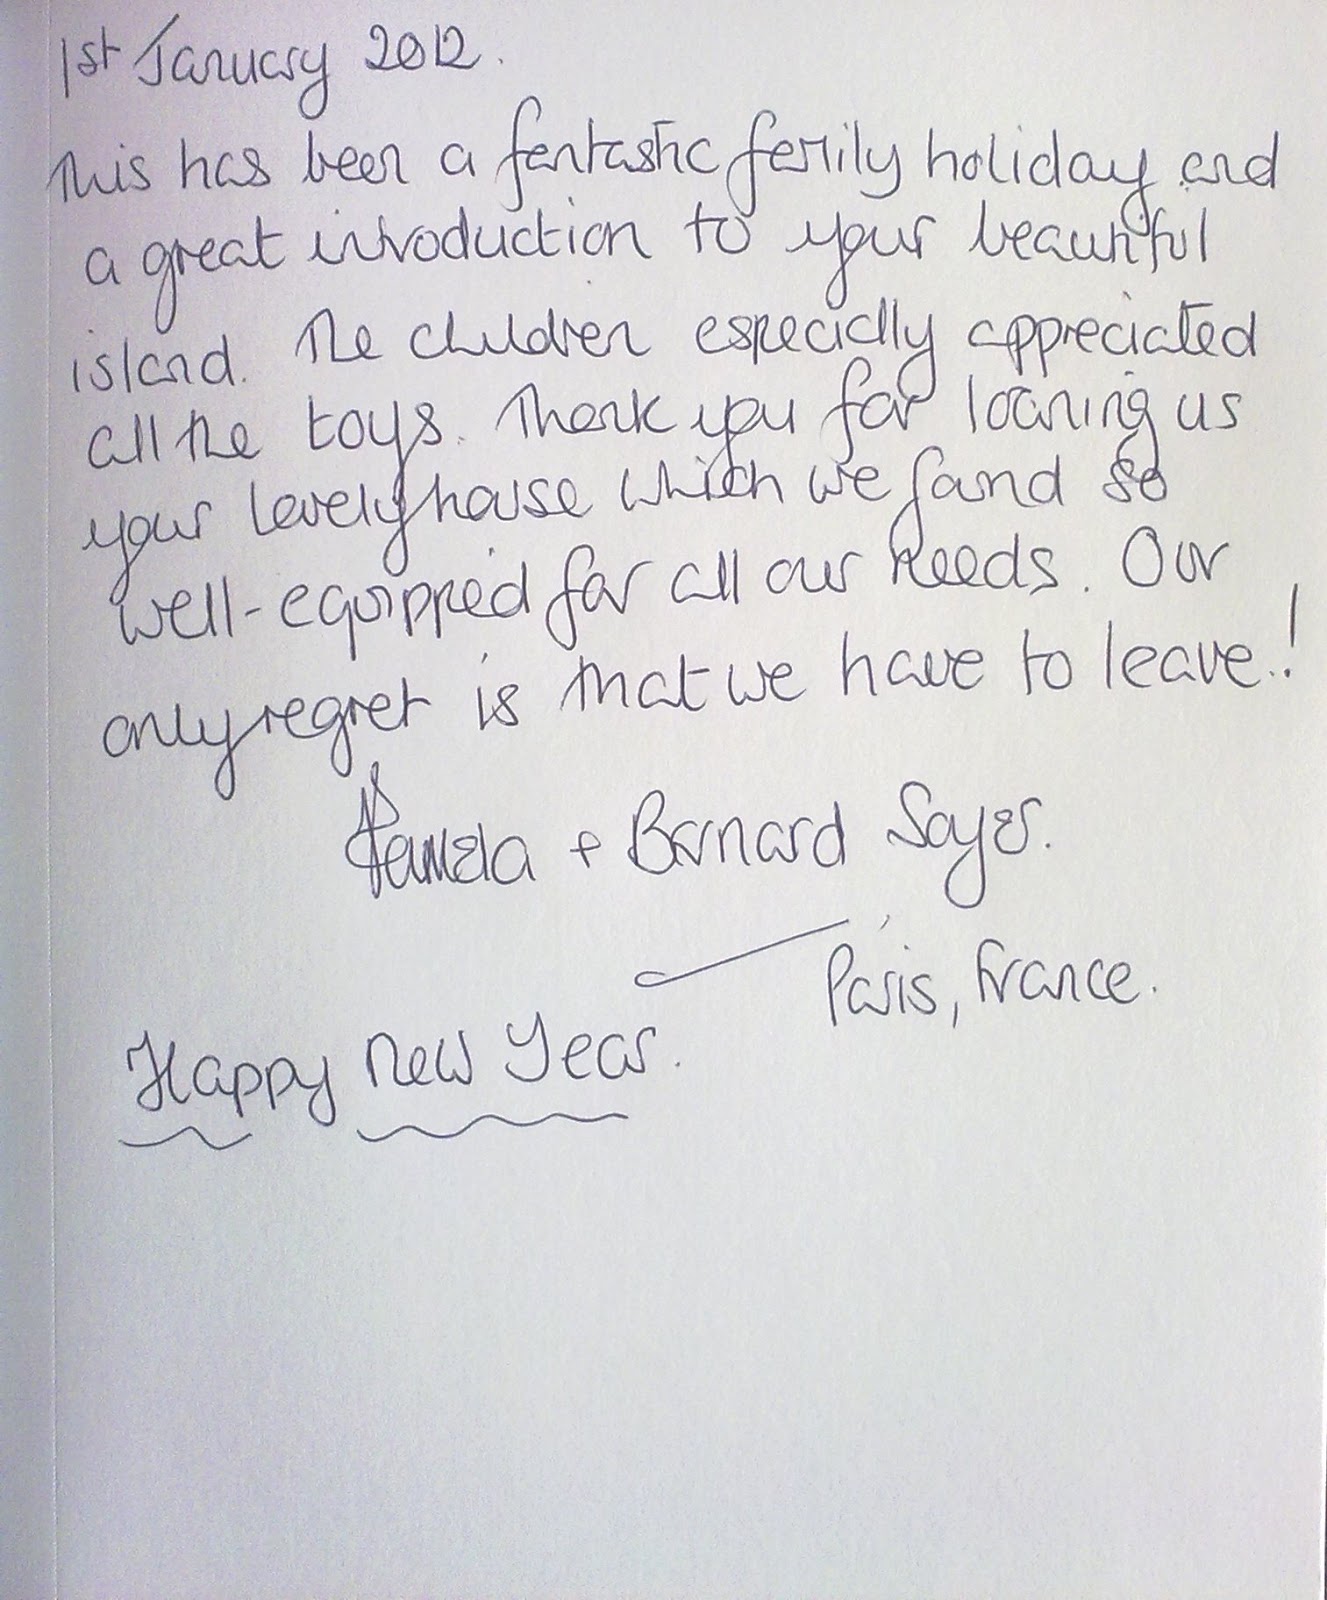 1st January 2012.
This has been a fantastic family holiday and
a great introduction to your beautiful
island. The children especially appreciated
all the toys. Thank you for loaning us
your lovely house which we found so
well-equipped for all our needs. Our
only regret is that we have to leave!
Pamela + Bernard Sayer.
Paris, France.
Happy New Year.